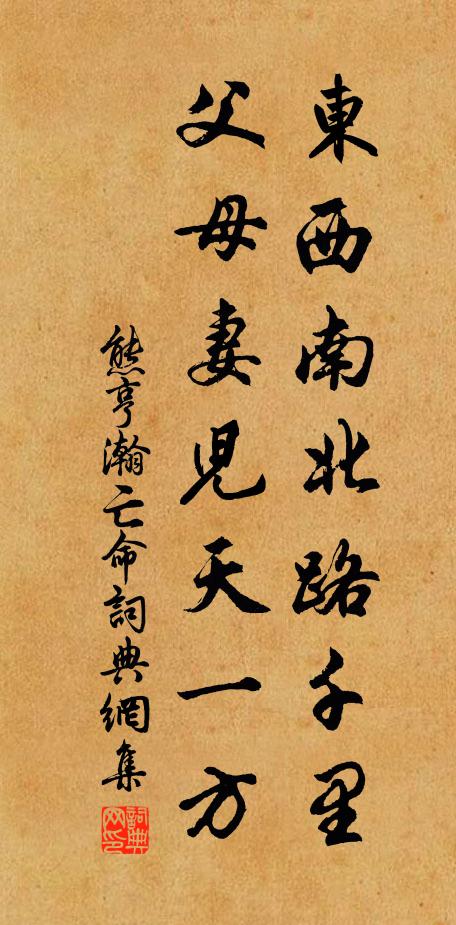 東西南北路千里
父母妻児天一方
熊亨瀚亡命詞典網集
詞典网印